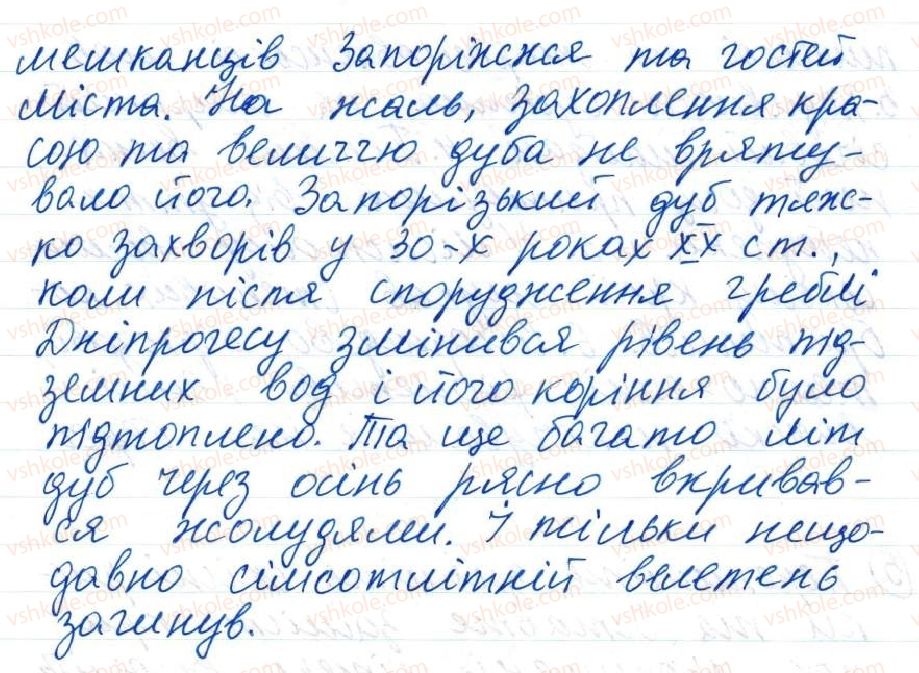 мешканців Запоріжжя та гостей
міста. На жаль, захоплення кра-
сою та величчю дуба не вряту-
вало його. Запорізький дуб тяж-
ко захворів у 30-х роках XX ст.,
коли після спорудження греблі
Дніпрогесу змінився рівень під-
земних вод і його коріння було
підтоплено. Та ще багато літ
дуб через осінь рясно вкривав-
ся жолудями. І тільки нещо-
давно сімсотлітній велетень
загинув.